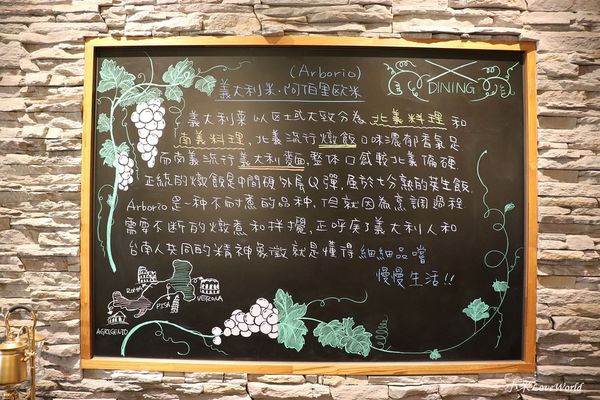 (Arborio)
義大利米.阿柏里歐米
DINING
義大利菜以區域大致分為北義料理和
南義料理,北義流行燉飯口味濃郁香氣足
而南義流行義大利麵,整体口感較北義偏硬.
正統的燉飯是中間硬外層Q彈,屬於七分熟的夾生飯.
Arborio是一種不耐煮的品种,但就因為烹調過程
需要不断的燉煮和拌攪,正呼応了義大利人和
台南人共同的精神象徵就是懂得細細品嚐
慢慢生活!!
ROMA
PISA
VERONA
AGRIGENTO
小米LoveWorld